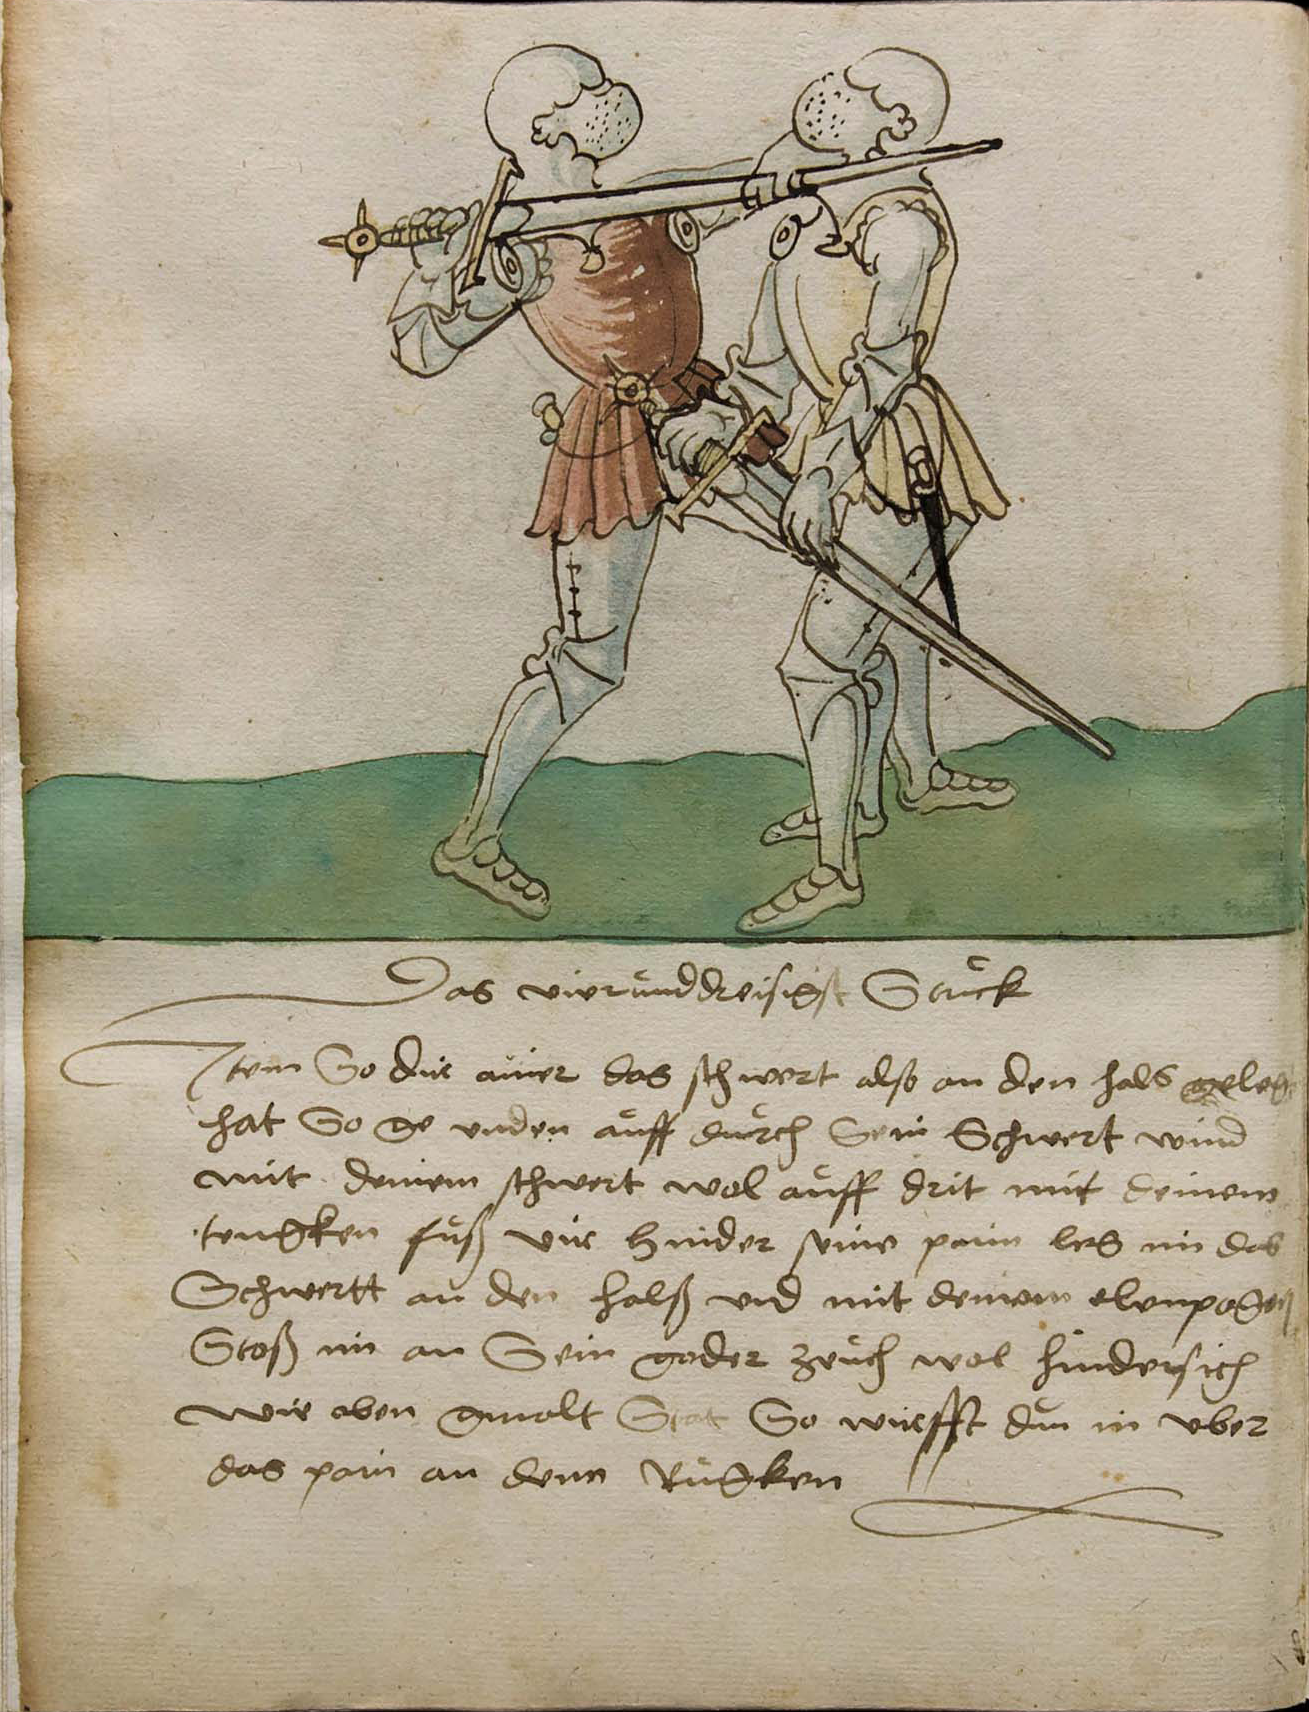 Das vierunddreisigst Stuck
Item So dir ainer das schwert also an den hals geleg
hat So ge unden auff durch Sein Schwert wind
mit deinem schwert wol auff drit mit deinem
tengken fuß vir hinder seine pain leg im das
Schwertt an den halß und mit deinem elenpogen
Stoß im an Sein goder zeuch wol hindersich
wie oben gmolt Stat So wirfft du in uber
das pain an denn Rugken